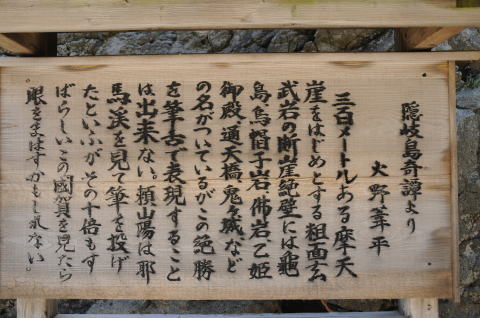 隠岐島奇譚より
火野葦平
三百メートルある摩天
崖をはじめとする粗面玄
武岩の断崖絶壁には亀
島、烏帽子岩、佛岩、乙姫
御殿、通天橋、鬼ヶ城など
の名がついているがこの絶勝
を筆舌で表現すること
は出来ない。頼山陽は耶
馬溪を見て筆を投げ
たといふが、その十倍もす
ばらしいこの國賀を見たら
眼をまはすかもしれない。